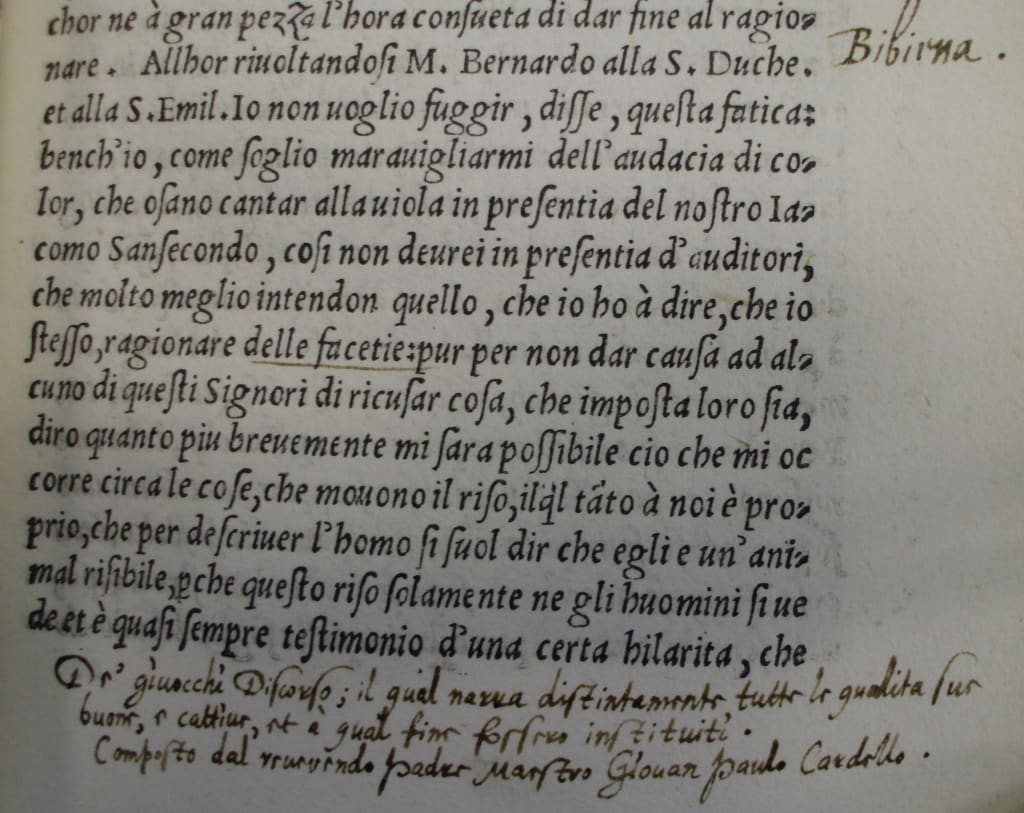 chor ne à gran pezza l'hora consueta di dar fine al ragio-
Bibirna.
nare. Allhor riuoltandosi M. Bernardo alla S. Duche.
et alla S. Emil. Io non uoglio fuggir, disse, questa fatica:
bench'io, come soglio marauigliarmi dell'audacia di co-
lor, che osano cantar alla uiola in presentia del nostro Ia-
como Sansecondo, cosi non deurei in presentia d'auditori,
che molto meglio intendon quello, che io ho à dire, che io
stesso, ragionare delle facetie: pur per non dar causa ad al-
cuno di questi Signori di ricusar cosa, che imposta loro sia,
diro quanto piu breuemente mi sara possibile cio che mi oc
corre circa le cose, che mouono il riso, ilq̃l tãto à noi è pro-
prio, che per descriuer l'homo si suol dir che egli e un'ani-
mal risibile, ꝑche questo riso solamente ne gli huomini si ue
de et è quasi sempre testimonio d'una certa hilarita, che
De' giuocchi Discorso; il qual narra distintamente tutte le qualita sue
buone, e cattiue, et à qual fine fossero instituiti.
Composto dal reuerendo Padre Maestro Giouan Paulo Cardello.